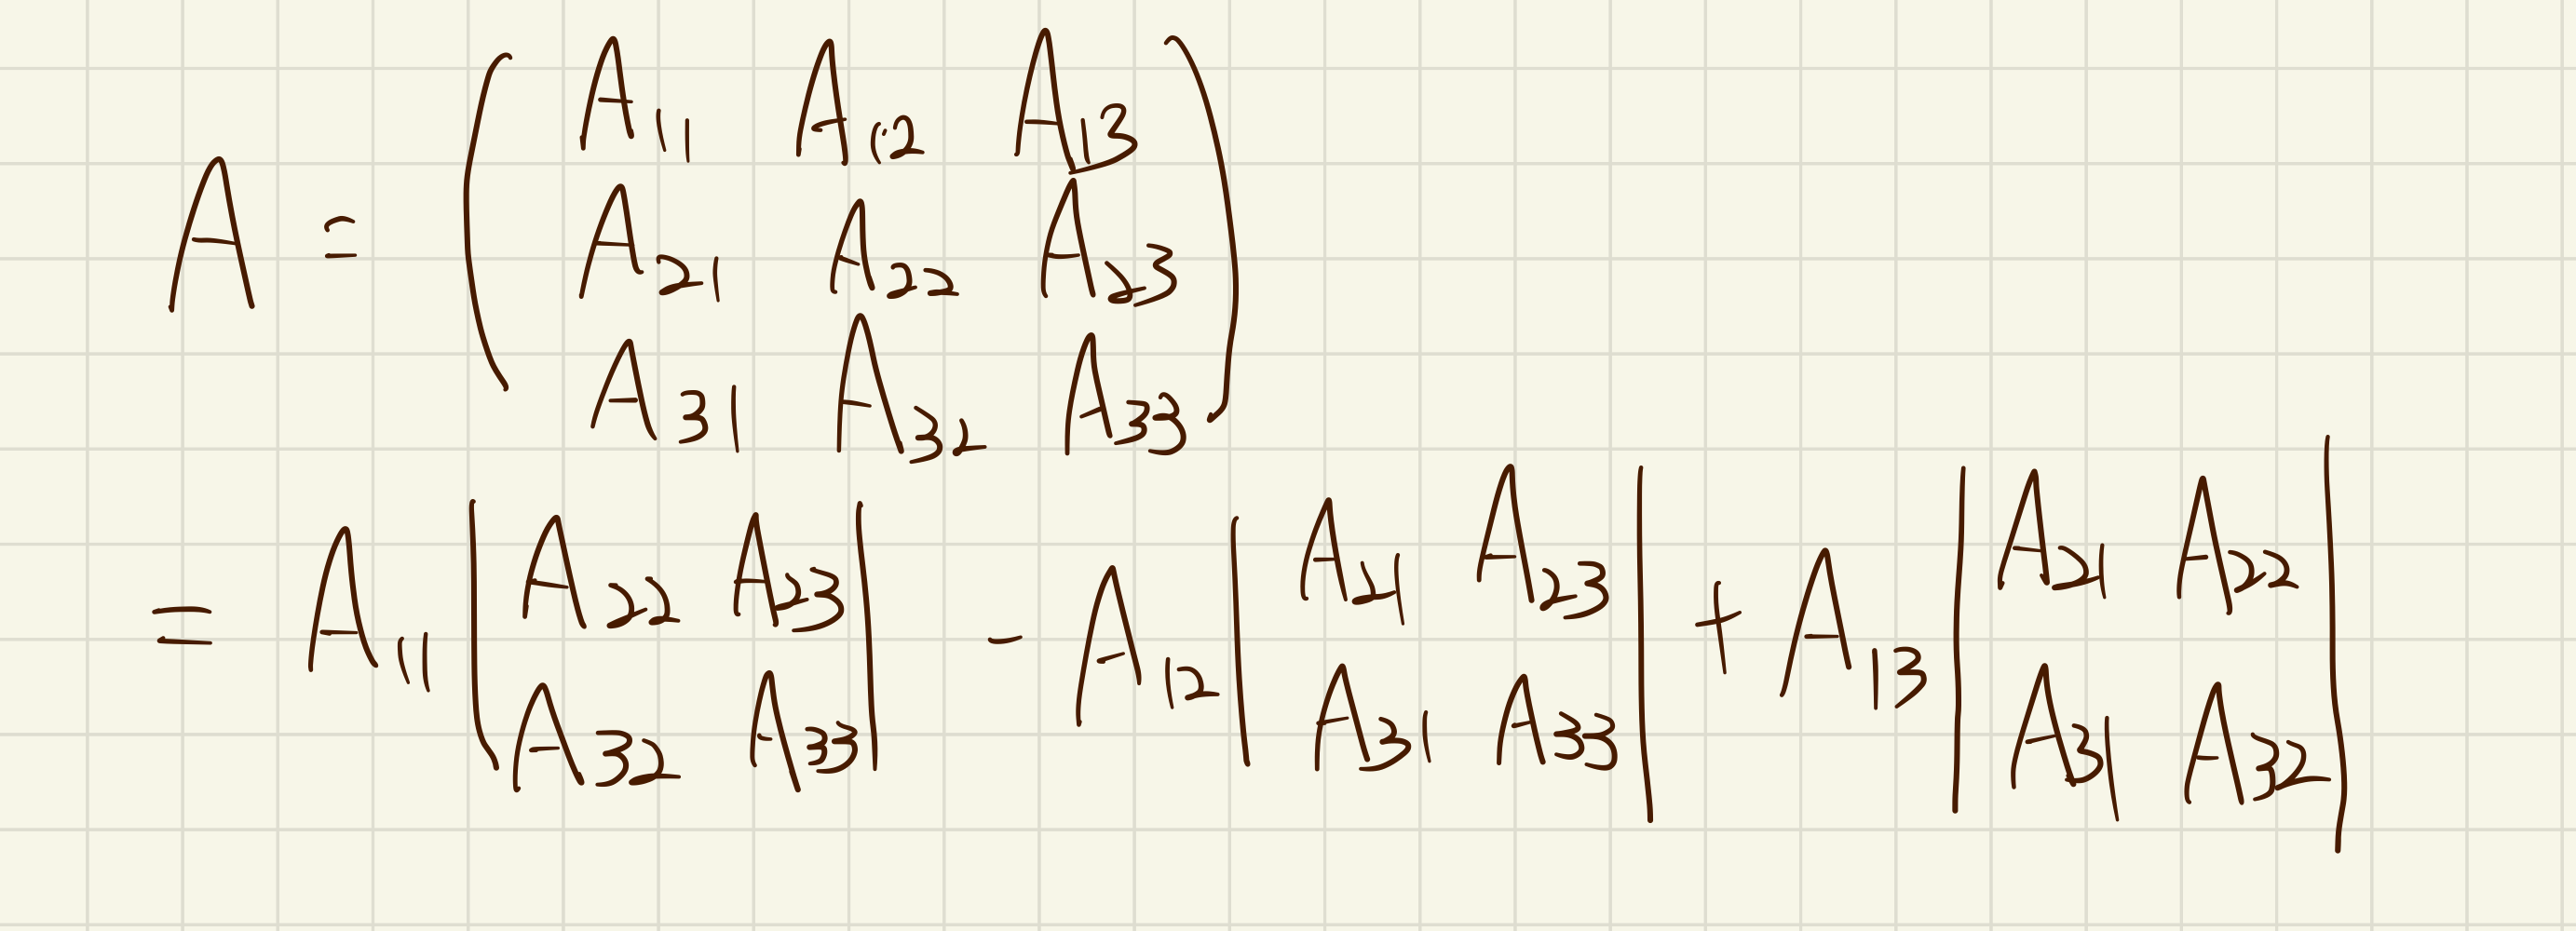 A = ( A₁₁ A₁₂ A₁₃
A₂₁ A₂₂ A₂₃
A₃₁ A₃₂ A₃₃ )
= A₁₁ | A₂₂ A₂₃ | - A₁₂ | A₂₁ A₂₃ | + A₁₃ | A₂₁ A₂₂ |
| A₃₂ A₃₃ | | A₃₁ A₃₃ | | A₃₁ A₃₂ |